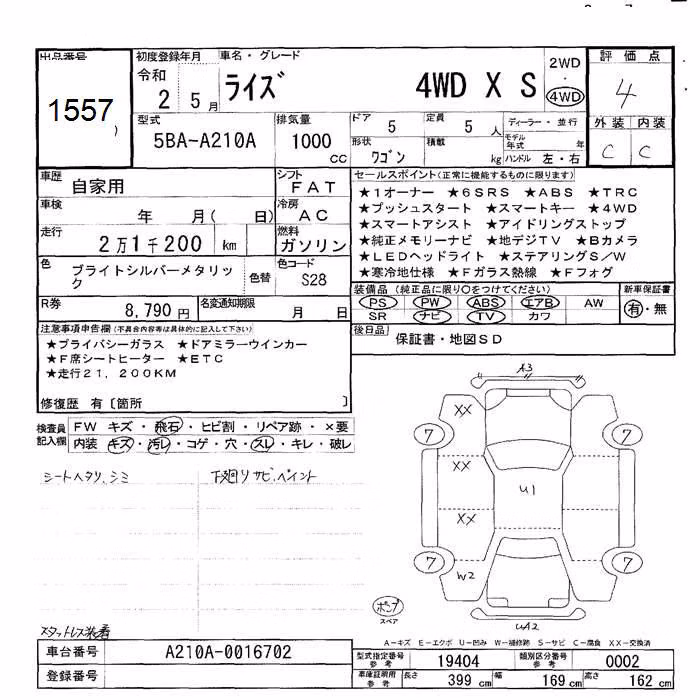 出品番号
1557
初度登録年月
令和
2 5月
車名・グレード
ライズ 4WD X S
2WD
・
4WD
評価点
4
外装 内装
C C
型式
5BA-A210A
排気量
1000
cc
ドア 5
定員 5 人
形状 ワゴン
積載 kg
ディーラー・並行
モデル年式 年
ハンドル 左・右
車歴
自家用
シフト
FAT
車検
年 月( 日)
冷房
AC
走行
2万1千200 km
燃料
ガソリン
色
ブライトシルバーメタリック
色替
色コード
S28
R券
8,790円
名変通知期限
月 日
セールスポイント(正常に機能するものに限ります)
★1オーナー ★6SRS ★ABS ★TRC
★プッシュスタート ★スマートキー ★4WD
★スマートアシスト ★アイドリングストップ
★純正メモリーナビ ★地デジTV ★Bカメラ
★LEDヘッドライト ★ステアリングS/W
★寒冷地仕様 ★Fガラス熱線 ★Fフォグ
装備品(純正品に限り○をつけてください)
PS PW ABS エアB AW
SR ナビ TV カワ
新車保証書
有・無
後日品
保証書・地図SD
注意事項申告欄(不具合内容等は具体的に記入して下さい)
★プライバシーガラス ★ドアミラーウインカー
★F席シートヒーター ★ETC
★走行21,200KM
修復歴 有〔箇所 〕
検査員記入欄
FW キズ・飛石・ヒビ割・リペア跡・×要
内装 キズ・汚レ・コゲ・穴・スレ・キレ・破レ
シートヘタリ、シミ
下廻りサビ、ペイント
スタットレス装着
A3
XX
7
7
XX
U1
XX
W2
7
7
UA2
ポンプ
スペア
A−キズ E−エクボ U−凹み W−補修跡 S−サビ C−腐食 XX−交換済
車台番号
A210A-0016702
登録番号
型式指定番号
参考
19404
類別区分番号
参考
0002
車庫証明用
参考
長さ 399 cm
幅 169 cm
高さ 162 cm